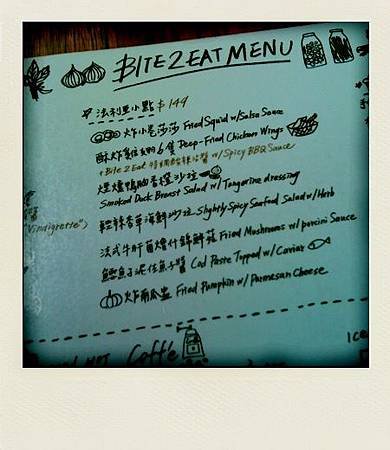 BITE2EAT MENU
法利亞小點 $149
炸小卷莎莎 Fried Squid w/Salsa Sauce
酥炸雞翅 6隻 Deep-Fried Chicken Wings
+Bite 2 Eat 特調酸辣沾醬 w/Spicy BBQ Sauce
煙燻鴨胸香橙沙拉
Smoked Duck Breast Salad w/Tangerine dressing
輕辣香草海鮮沙拉 Slightly Spicy Seafood Salad w/Herb
法式牛肝菌燴什錦鮮菇 Fried Mushrooms w/porcini Sauce
鱈魚泥佐魚子醬 Cod Paste Topped w/Caviar
炸南瓜盅 Fried Pumpkin w/Parmesan Cheese
醬
Vindigrette")
HOT Coffe
Ice